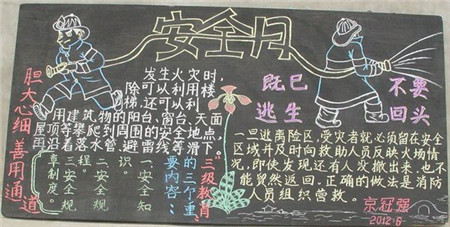 安全月
胆大心细 善用通道
发生火灾时，
除可利用楼
梯，还可以利
用建筑物的阳台、窗台、天面
屋顶等攀爬到周围的安全地点
再沿着落水管、避雷线等滑下
三级教育
的三个重
要内容：
一安全知
识。
二安全规
程。
三安全规
章制度。
既已
逃生
不要
回头
一旦逃离险区，受灾者就必须留在安全
区域并及时向救助人员反映火场情
况，即使发现还有人没撤出来，也不
能贸然返回。正确的做法是消防
人员组织营救。
京冠强
2012.6